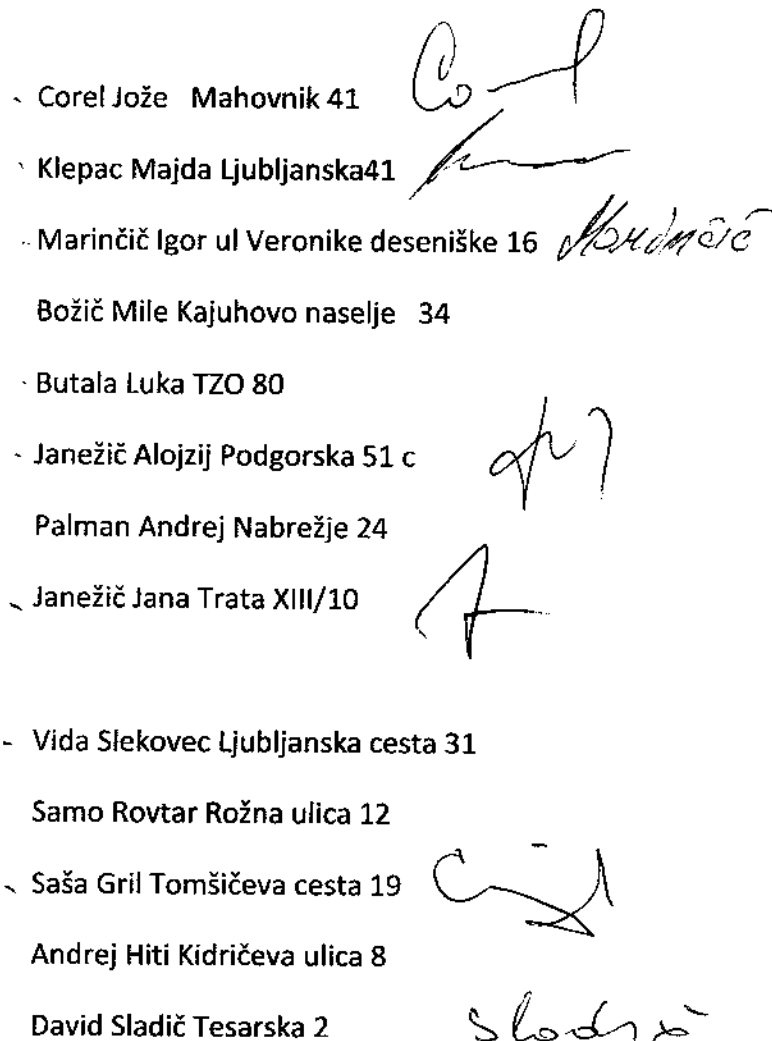 Corel Jože Mahovnik 41
Klepac Majda Ljubljanska41
Marinčič Igor ul Veronike deseniške 16 Marinčič
Božič Mile Kajuhovo naselje 34
Butala Luka TZO 80
Janežič Alojzij Podgorska 51 c
Palman Andrej Nabrežje 24
Janežič Jana Trata XIII/10
- Vida Slekovec Ljubljanska cesta 31
Samo Rovtar Rožna ulica 12
Saša Gril Tomšičeva cesta 19
Andrej Hiti Kidričeva ulica 8
David Sladič Tesarska 2 Sladič